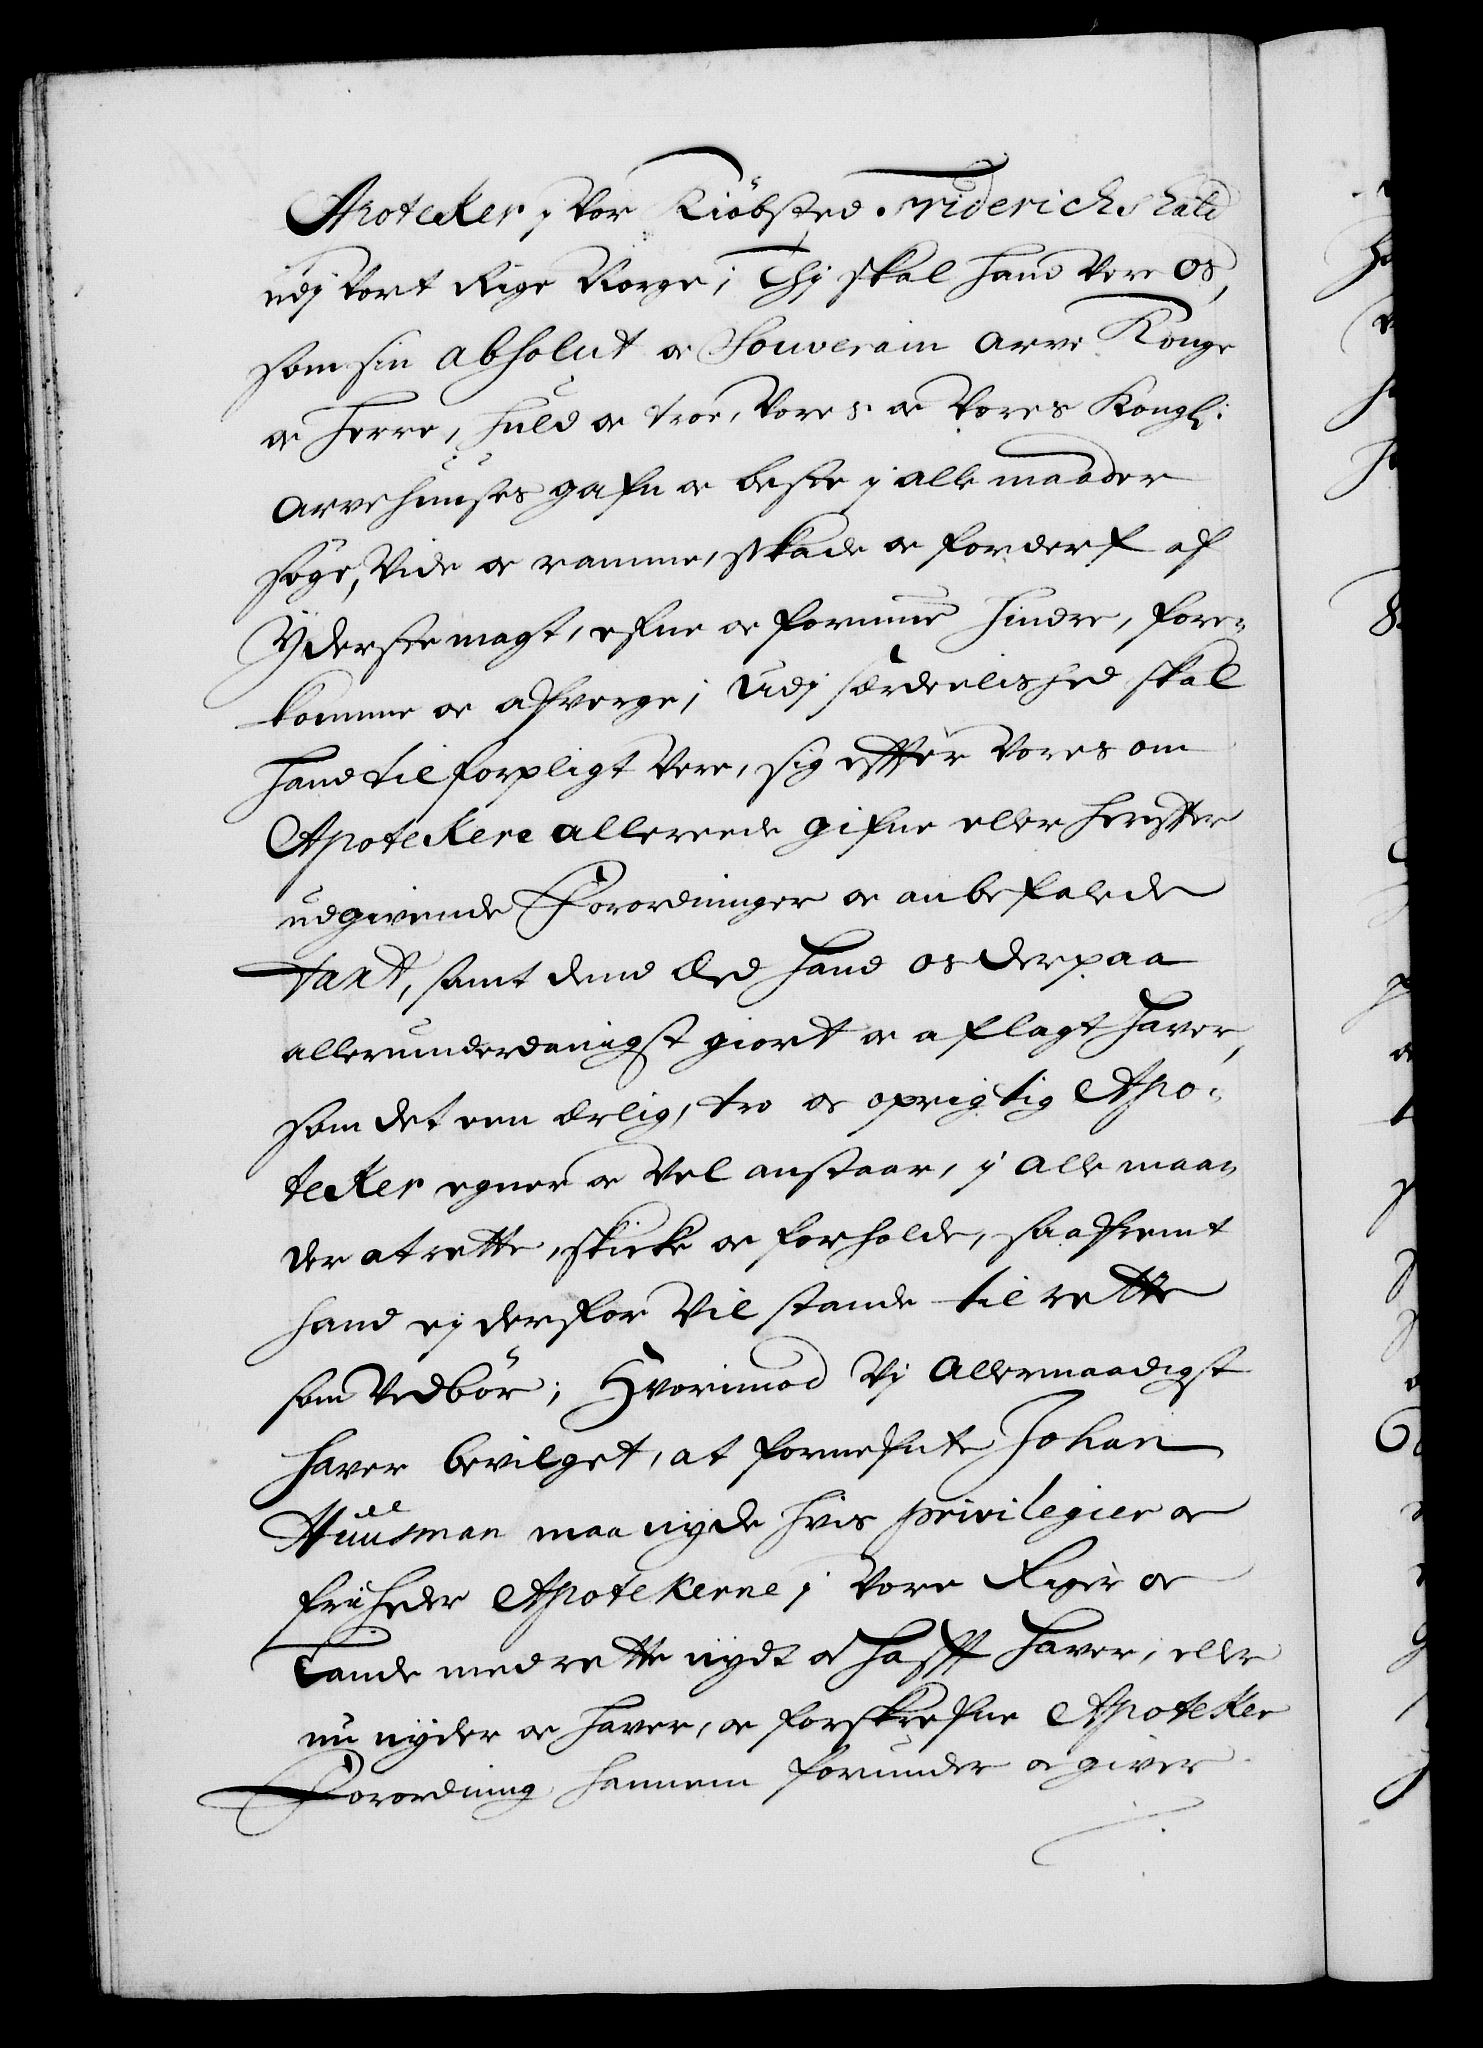 Apotecker j Vor Kiöbsted Friderichshald
udj Vort Rige Norge; Thj skal hand Vere Os,
som sin absolut oc Souverain arve Konge
oc Herre, huld oc troe, Vores oc Vores Kongl:
arvehuuses gafn oc beste j alle maader
söge, Vide oc ramme, skade oc forderf af
Yderste magt, efne oc formue hindre, fore-
komme oc afverge; Udj særdeelished skal
hand tilforpligt Vere, sig effter Vores om
Apoteckere allereede gifne eller hereffter
udgivende Forordninger oc anbefalede
taxt, samt dend Eed hand os derpaa
allerunderdanigst giort oc aflagt haver,
som det een ærlig, tro oc oprigtig Apo-
tecker egner oc Vel anstaar, j alle maa-
der at rette, skicke oc forholde, saafremt
hand ej derfor Vil stande til rette
som Vedbör; Hvorimod Vj allernaadigst
haver bevilget, at fornefnte Johan
Huusman maa nyde hvis privilegier oc
friiheder Apotekerne j Vore Riger oc
Lande med rette nydt oc hafft haver, eller
nu nyder oc haver, oc forskrefne Apoteker
Forordning hannem forunder oc giver